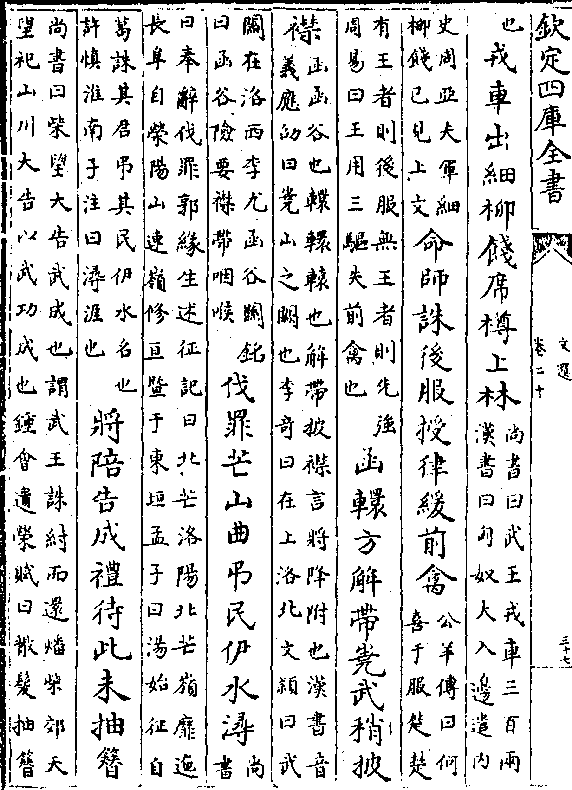 欽定四庫全書
文選
卷二十
三十七
也戎車出細柳餞席樽上林尚書曰武王戎車三百兩漢書曰匈奴大入邊遣内
史周亞夫軍細柳餞已見上文命師誅後服授律緩前禽公羊傳曰何喜于服楚楚
有王者則後服無王者則先強周易曰王用三驅失前禽也函轘方解帶嶢武稍披
襟函函谷也轘轘轅也解帶披襟言將降附也漢書音義應劭曰嶢山之關也李奇曰在上洛北文穎曰武
關在洛西李尤函谷關銘曰函谷險要襟帶咽㗋伐罪芒山曲弔民伊水潯尚書
曰奉辭伐罪郭緣生述征記曰北芒洛陽北芒嶺靡迤長阜自滎陽山連嶺修亘暨于東垣孟子曰湯始征自
葛誅其君弔其民伊水名也許慎淮南子注曰潯涯也將陪告成禮待此未抽簪
尚書曰柴望大告武成也謂武王誅紂而還燔柴郊天望祀山川大告以武功成也鍾會遺榮賦曰散髮抽簪